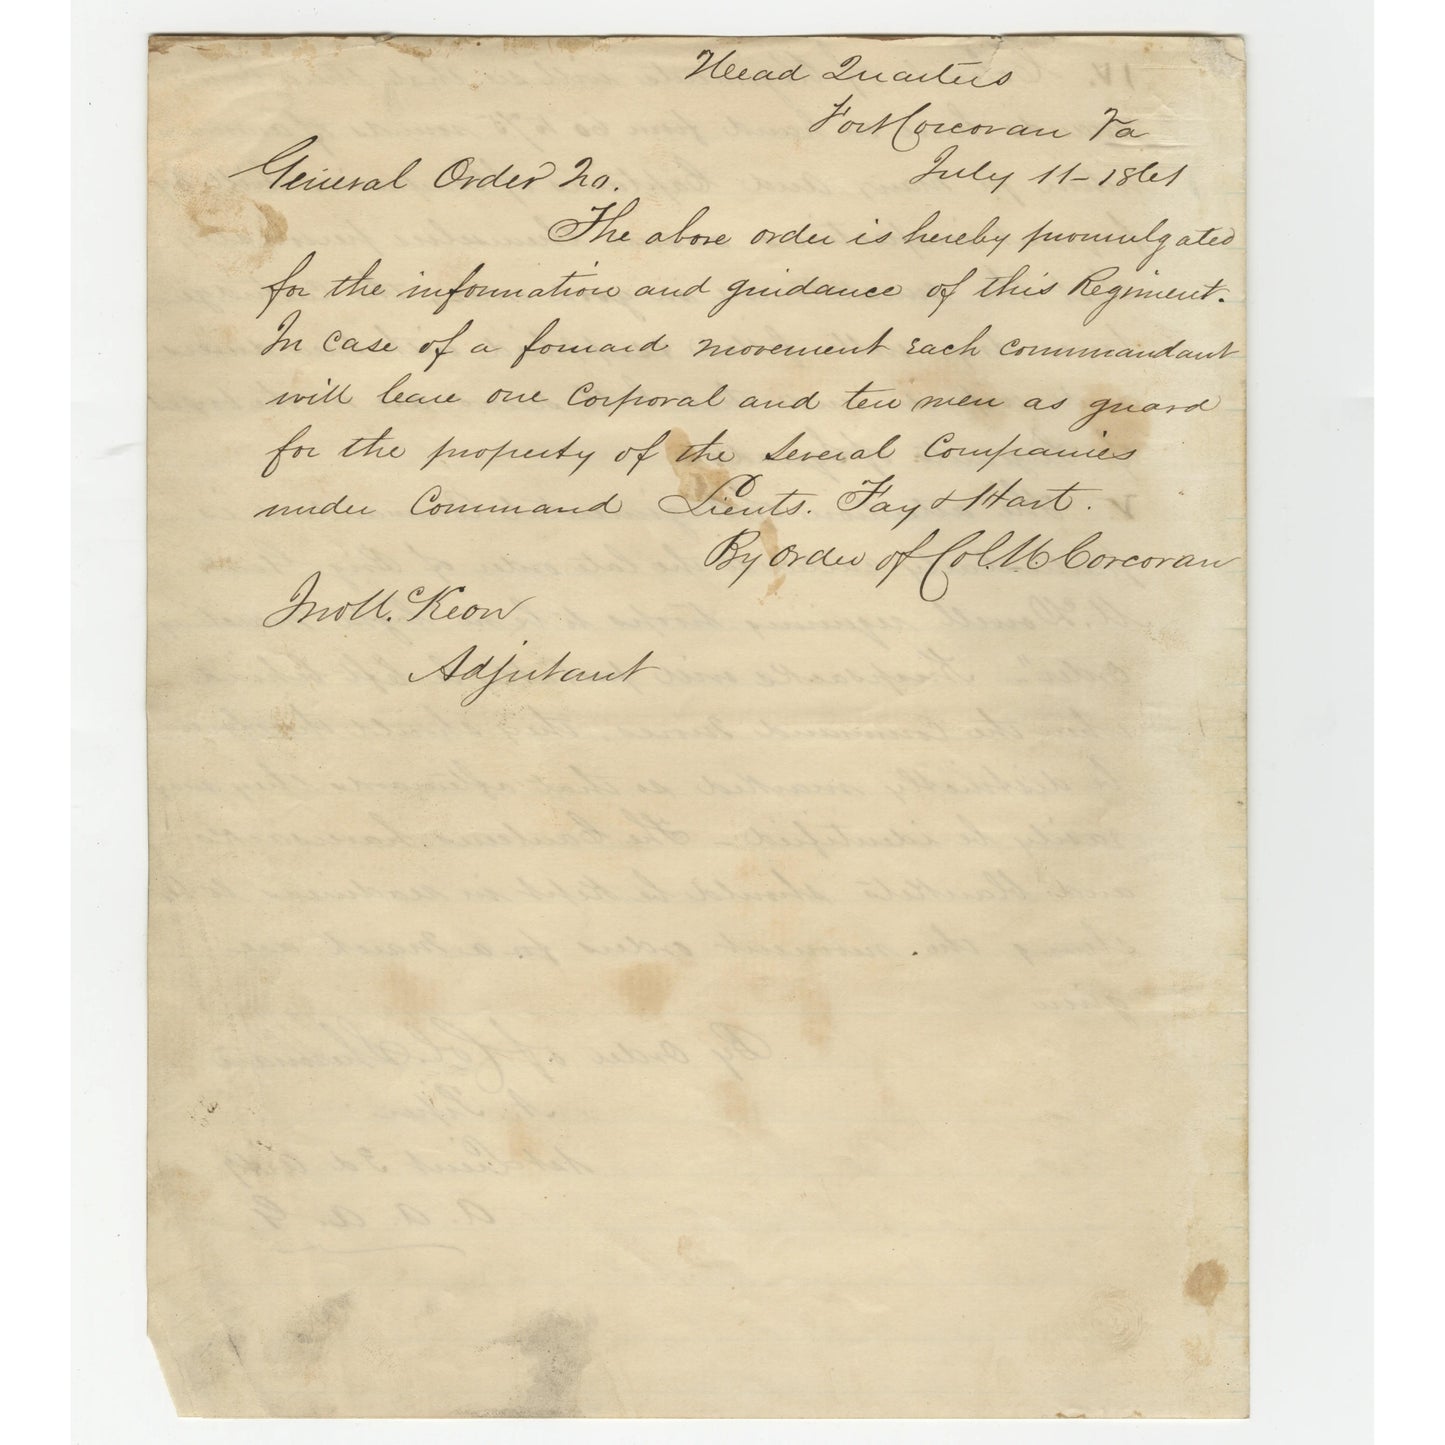 Head Quarters
Fort Corcoran Va
July 11-1861
General Order No.
The above order is hereby promulgated
for the information and guidance of this Regiment.
In case of a forward movement each commandant
will leave one Corporal and ten men as guard
for the property of the several Companies
under Command Lieuts. Fay & Hart.
By order of Col. M Corcoran
Jno M. cKeon
Adjutant